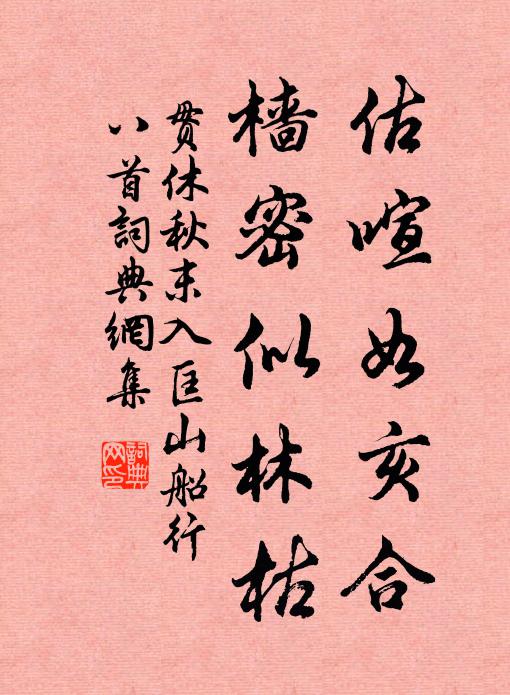 估喧如亥合
檣密似林枯
贯休秋末入匡山船行
八首詞典網集
詞典網印